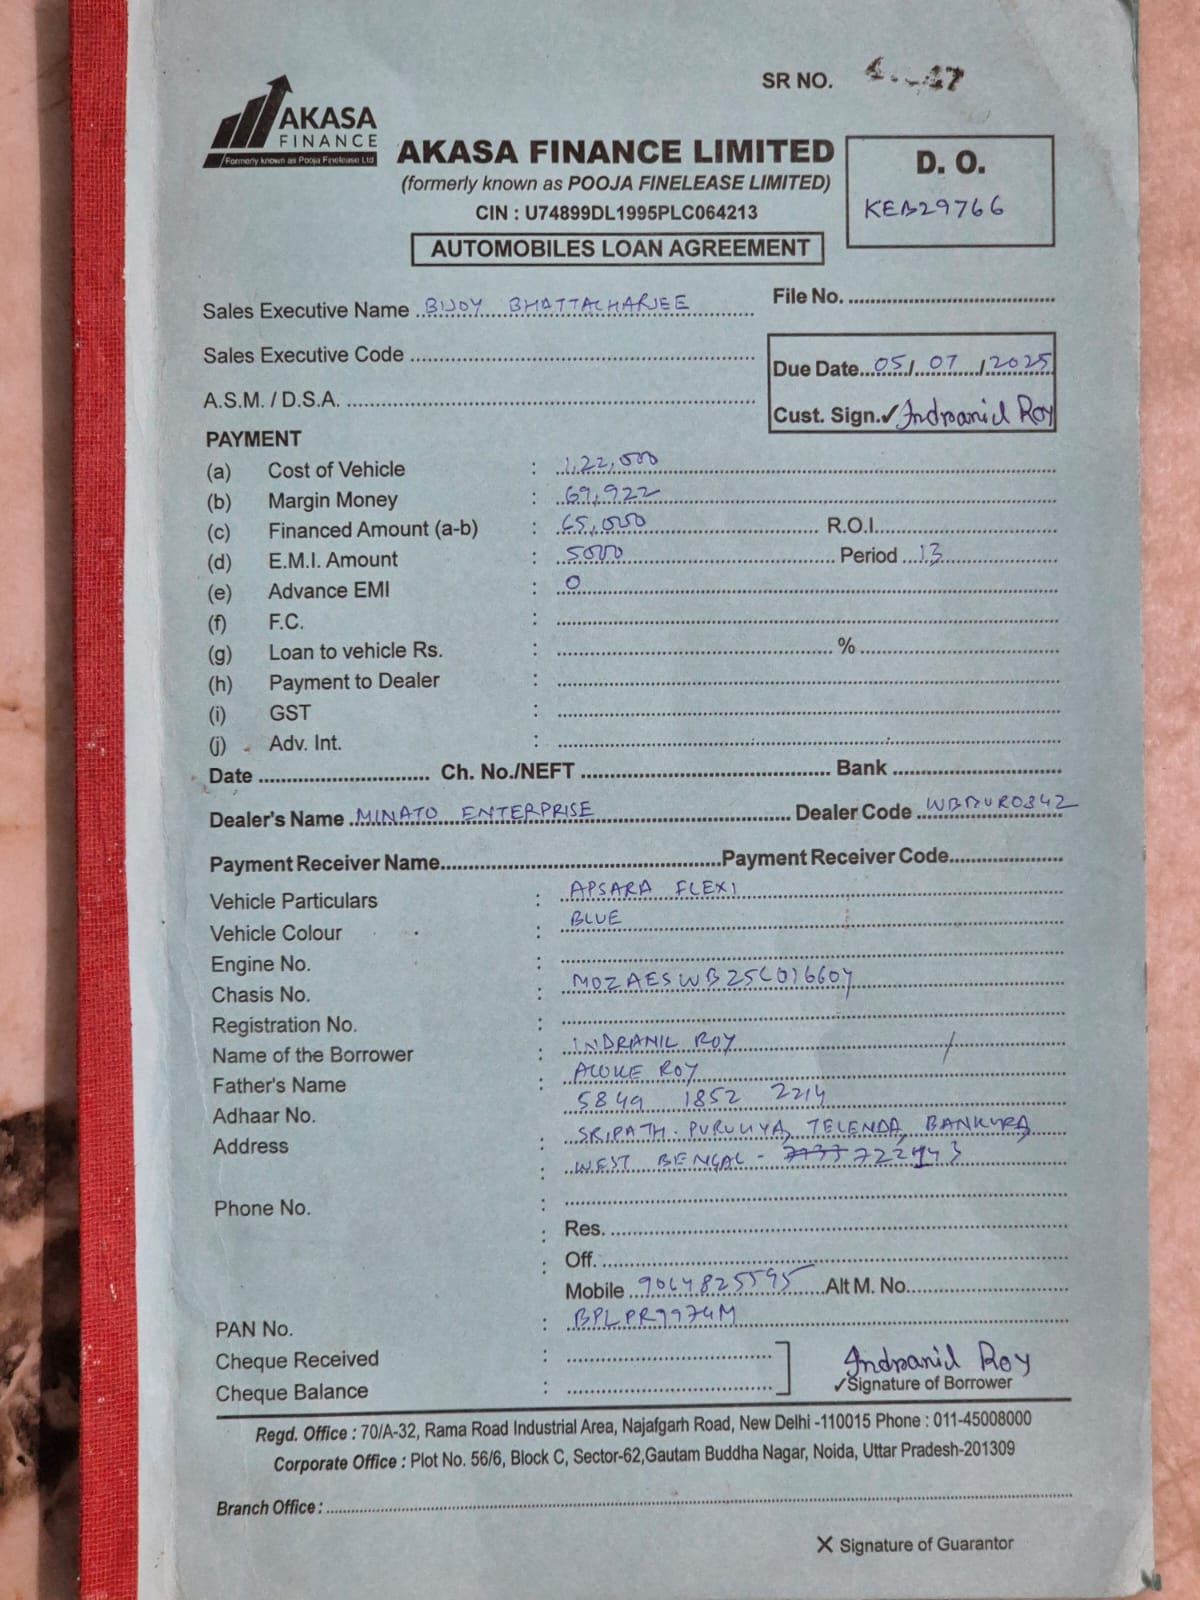 SR NO.
AKASA
FINANCE
Formerly known as Pooja Finelease Ltd
AKASA FINANCE LIMITED
(formerly known as POOJA FINELEASE LIMITED)
CIN : U74899DL1995PLC064213
AUTOMOBILES LOAN AGREEMENT
D. O.
KEB29766
Sales Executive Name BIJOY BHATTACHARJEE
File No.
Sales Executive Code
Due Date 05/07/2025
A.S.M. / D.S.A.
Cust. Sign.✓ Indranil Roy
PAYMENT
(a) Cost of Vehicle : 1,22,000
(b) Margin Money : 69,922
(c) Financed Amount (a-b) : 65,000 R.O.I.
(d) E.M.I. Amount : 5000 Period 13
(e) Advance EMI : 0
(f) F.C. :
(g) Loan to vehicle Rs. : %
(h) Payment to Dealer :
(i) GST :
(j) Adv. Int. :
Date Ch. No./NEFT Bank
Dealer's Name MINATO ENTERPRISE Dealer Code
Payment Receiver Name Payment Receiver Code
Vehicle Particulars : APSARA FLEXI
Vehicle Colour : BLUE
Engine No. :
Chasis No. : MOZAESWB25C016604
Registration No. :
Name of the Borrower : INDRANIL ROY
Father's Name : ALOKE ROY
Adhaar No. 5849 1852 2214
Address : SRIPATH. PURULIYA, TELENDA, BANKURA
: WEST BENGAL -
Phone No. :
: Res.
: Off.
Mobile 9064825595 Alt M. No.
PAN No. : BPLPR9974M
Cheque Received :
Cheque Balance :
Indranil Roy
✓Signature of Borrower
Regd. Office : 70/A-32, Rama Road Industrial Area, Najafgarh Road, New Delhi -110015 Phone : 011-45008000
Corporate Office : Plot No. 56/6, Block C, Sector-62,Gautam Buddha Nagar, Noida, Uttar Pradesh-201309
Branch Office :
X Signature of Guarantor